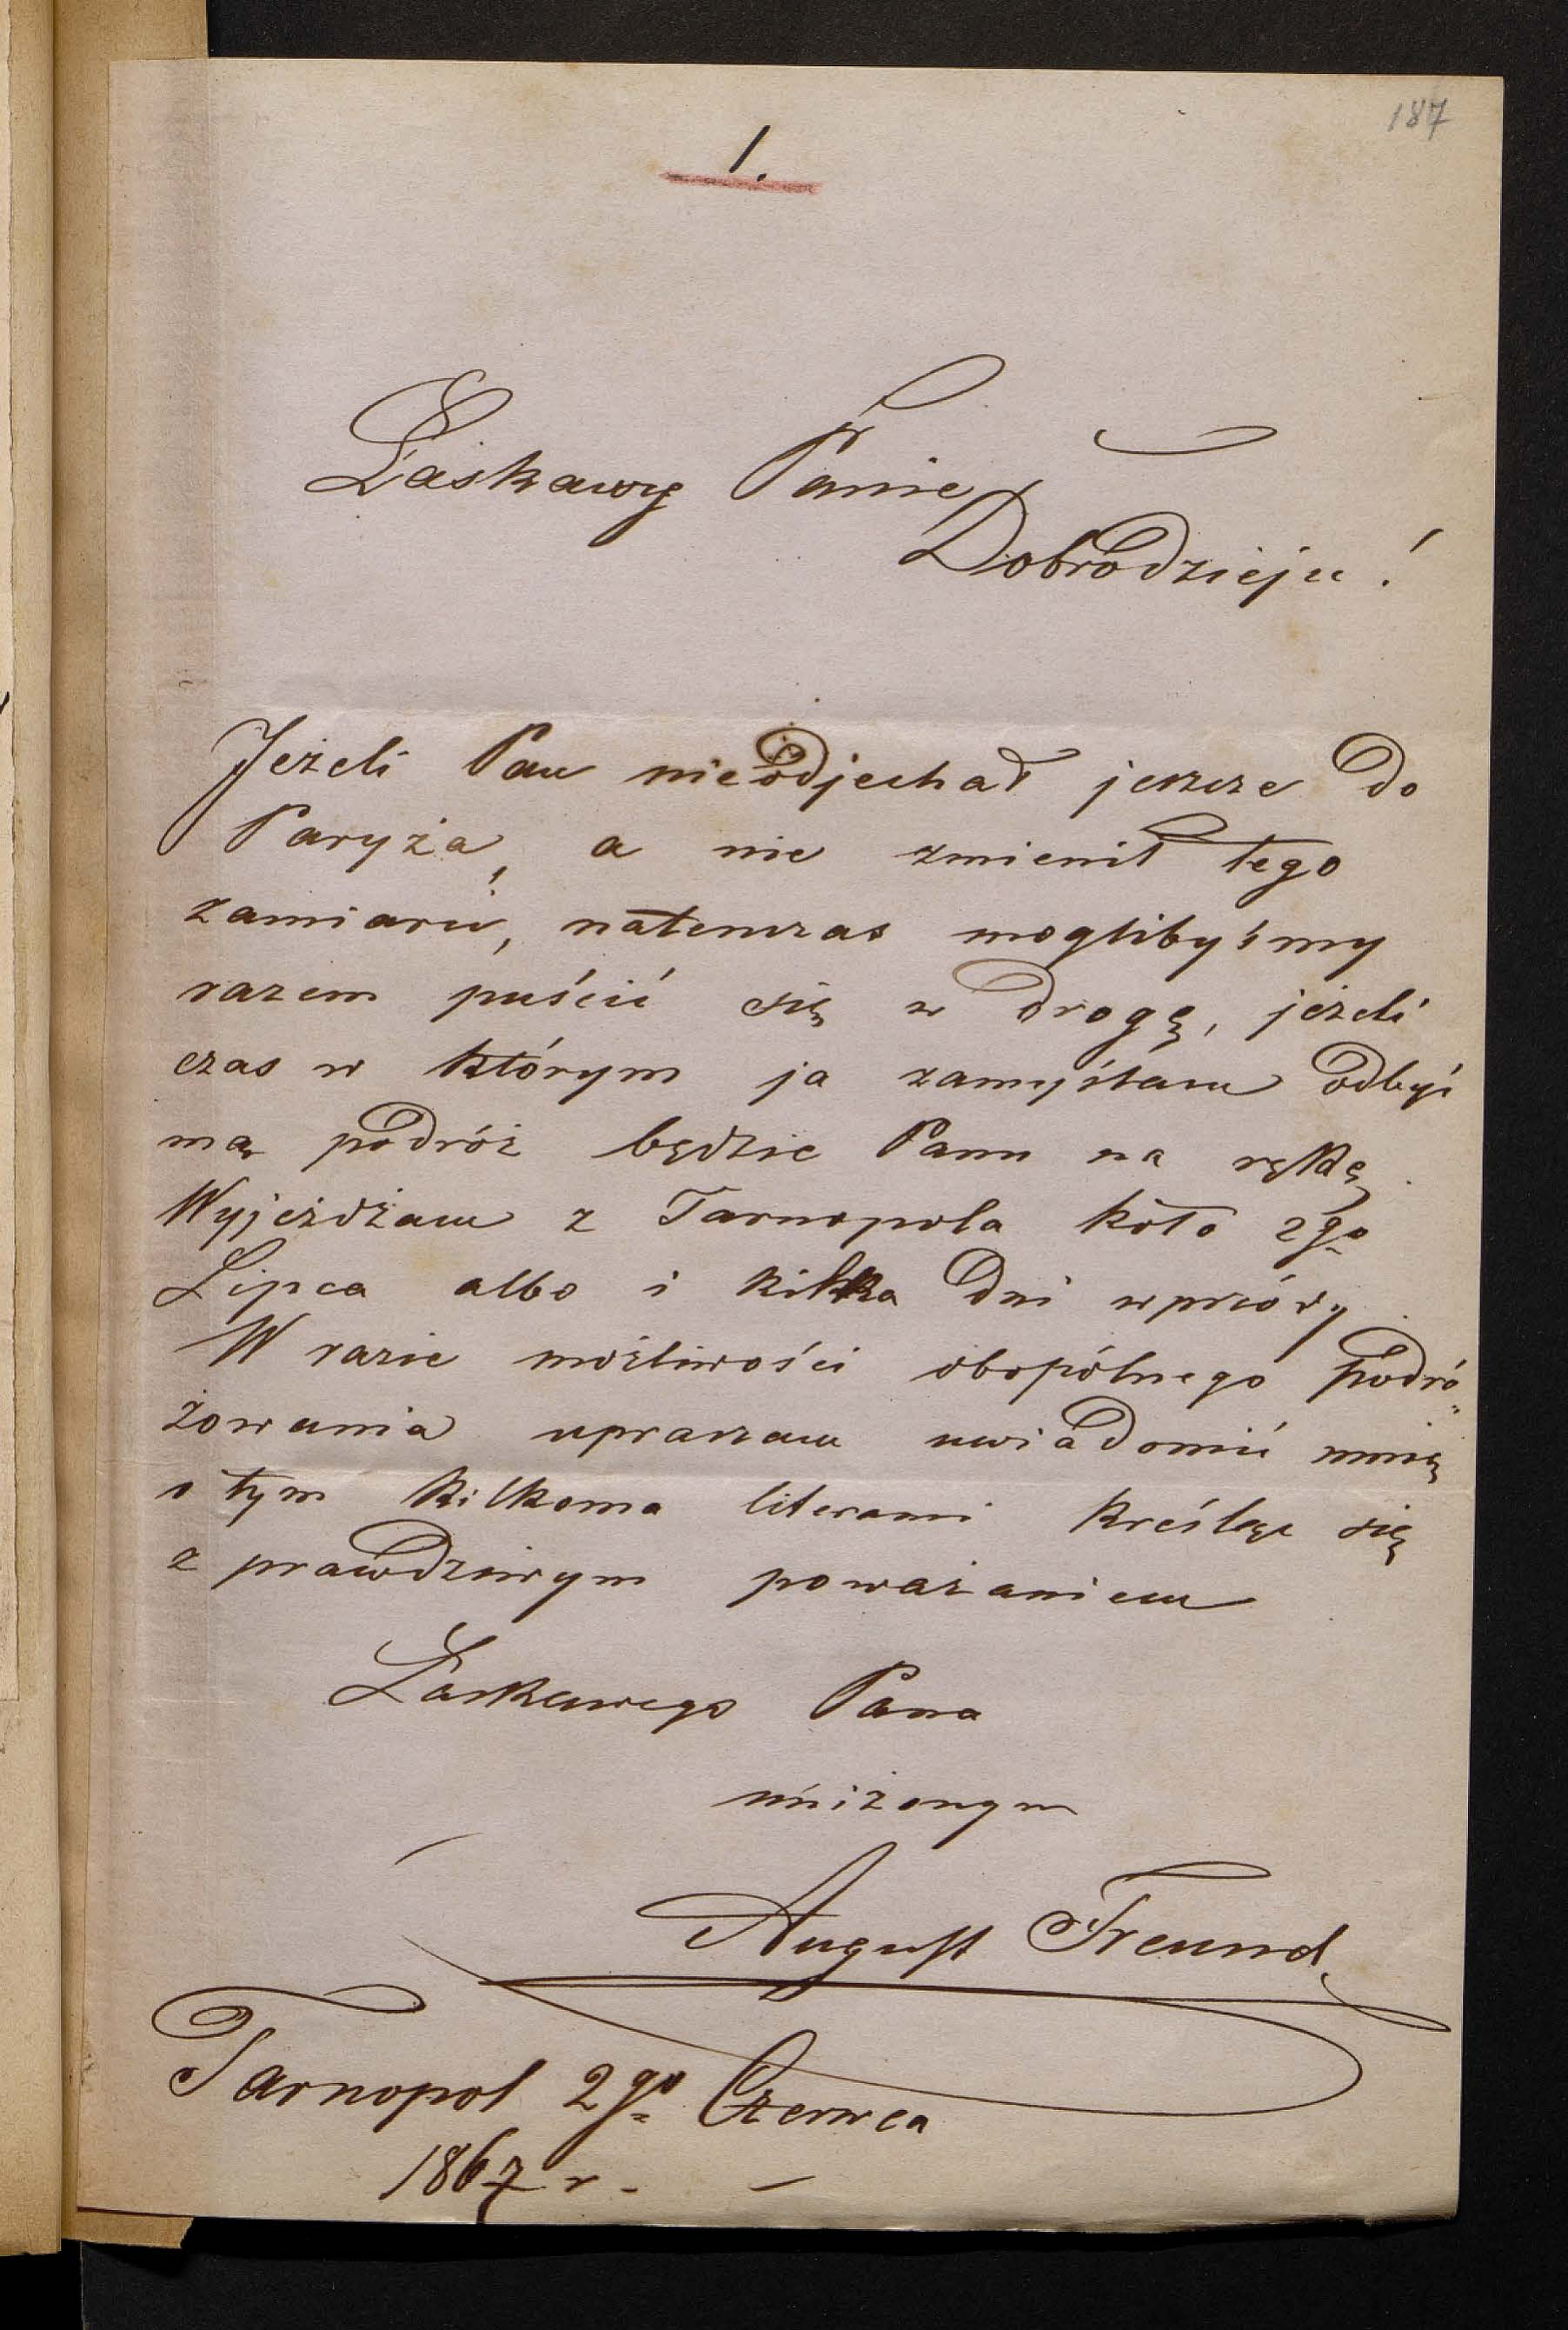 187
1.
Łaskawy Panie
Dobrodzieju!
Jeżeli Pan nieodjechał jeszcze do
Paryża, a nie zmienił tego
zamiaru, natenczas moglibyśmy
razem puścić się w drogę, jeżeli
czas w którym ja zamyślam odbyć
mą podróż będzie Panu na rękę.
Wyjeżdżam z Tarnopola koło 2go
Lipca albo i kilka dni wprzódy.
W razie możliwości obopólnego podró„
żowania upraszam uwiadomić mnię
o tym kilkoma literami kreśląc się
z prawdziwym poważaniem
Łaskawego Pana
uniżonym
August Freund.
Tarnopol 2go Czerwca
1867 r. –